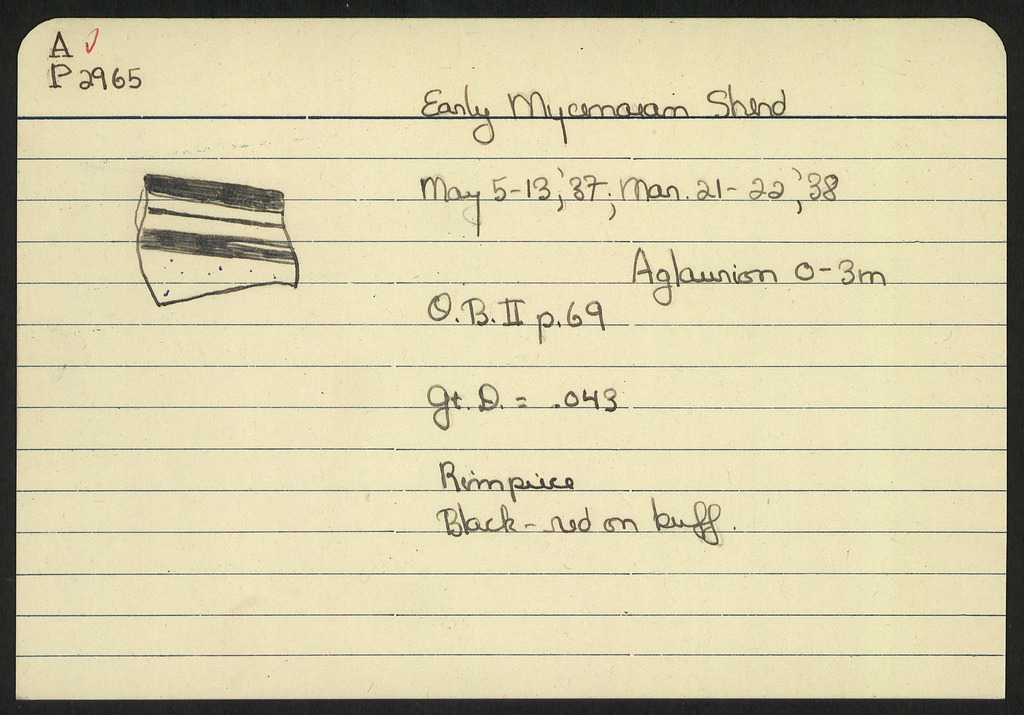 A
P 2965
Early Mycenaean Sherd
May 5-13, '37; Mar. 21-22, '38
Aglaurion 0-3m
O.B. II p. 69
Gt. D. = .043
Rimpiece
Black-red on buff.